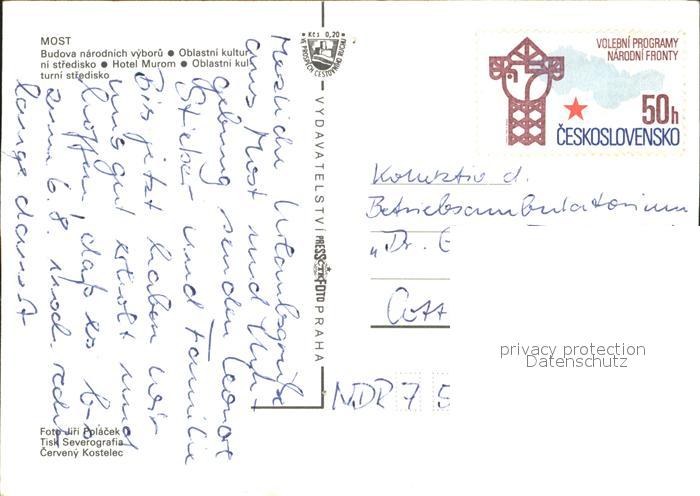 MOST
Budova národních výborů ● Oblastní kultur
ní středisko ● Hotel Murom ● Oblastní kul
turní středisko
Kčs 0,20
VE PROSPĚCH CESTOVNÍHO RUCHU
VOLEBNÍ PROGRAMY
NÁRODNÍ FRONTY
50h
ČESKOSLOVENSKO
VYDAVATELSTVÍ PRESSFOTO PRAHA
ČTK
Herzliche Urlaubsgrüße
aus Most und Um-
gebung senden
und Familie
Bis jetzt haben wir
uns gut erholt und
hoffen, daß es bis
zum 6.8. noch recht
lange dauert
Kollektiv d.
Betriebsambulatorium
"Dr.
Cott
NDR 7 5
privacy protection
Datenschutz
Foto Jiří Poláček
Tisk Severografia
Červený Kostelec